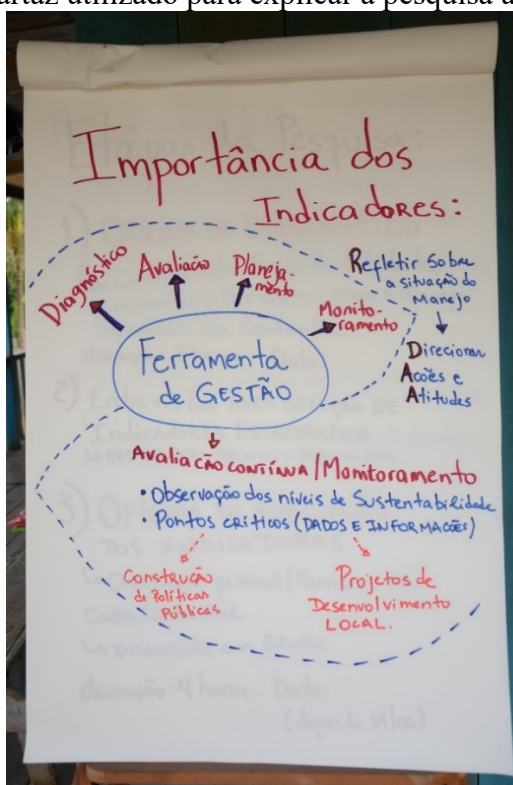 artaz utilizado para explicar a pesquisa a
Importância dos
Indicadores:
Diagnóstico
Avaliação
Planeja-
mento
Monito-
ramento
Refletir Sobre
a situação do
Manejo
Direcionar
Ações e
Atitudes
Ferramenta
de GESTÃO
Avaliação contínua/Monitoramento
• Observação dos níveis de Sustentabilidade
• Pontos críticos (DADOS E INFORMAÇÕES)
Construção
de Políticas
Públicas
Projetos de
Desenvolvimento
LOCAL.
Etapas da Pesquisa:
1)
2)
Indicadores
3)
DOS INDICADORES
duração: 4 horas - Data: